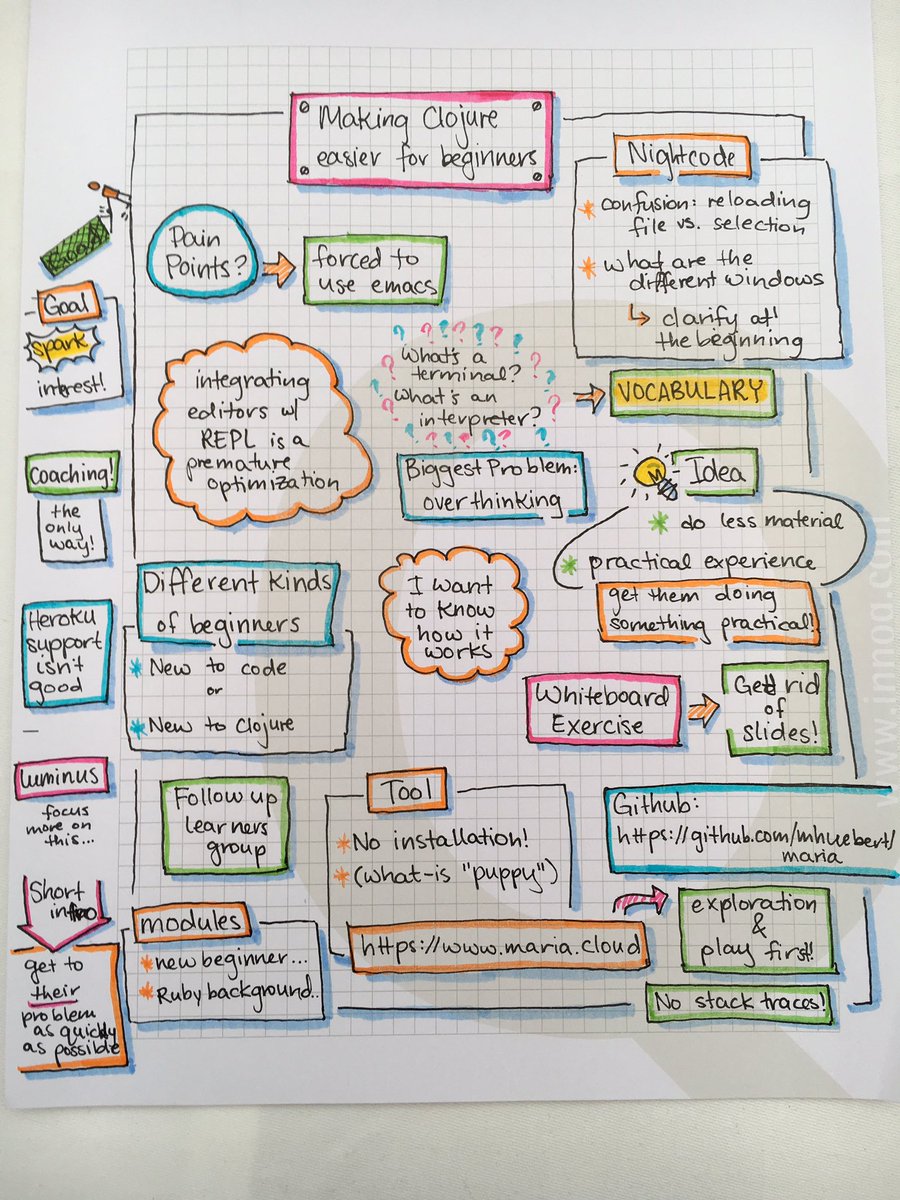 Making Clojure
easier for beginners
Nightcode
* confusion: reloading
file vs. selection
* what are the
different windows
↳ clarify at
the beginning
Pain
Points?
forced to
use emacs
Goal
Goal
spark
interest!
integrating
editors w/
REPL is a
premature
optimization
? ? ? ? ? ? ?
What's a
terminal?
What's an
interpreter?
VOCABULARY
Biggest Problem:
overthinking
Idea
* do less material
* practical experience
get them doing
something practical!
Coaching!
the
only
way!
Different Kinds
of beginners
* New to code
or
* New to Clojure
I want
to know
how it
works
Heroku
support
isn't
good
Whiteboard
Exercise
Get rid
of
slides!
Luminus
focus
more on
this...
Follow up
learners
group
Tool
* No installation!
* (what-is "puppy")
https://www.maria.cloud
Github:
https://github.com/mhuebert/
maria
exploration
&
play first!
No stack traces!
Short
intro
get to
their
problem
as quickly
as possible
modules
* new beginner...
* Ruby background..
www.innoq.com